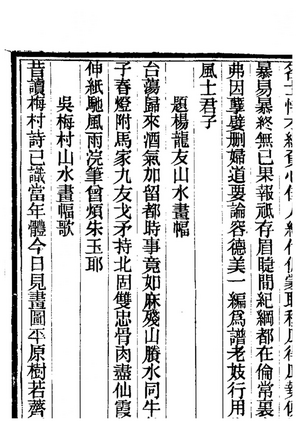 暴易暴終無已果報祗存眉睫間紀綱都在倫常裏
弗因孽嬖删婦道要論容德美一編爲譜老妓行用
風士君子
題楊龍友山水畫幅
台蕩歸來酒氣加留都時事竟如麻殘山賸水同牛
子春燈附馬家九友戈矛持北固雙忠骨肉盡仙霞
伸紙馳風雨浣筆曾煩朱玉耶
吳梅村山水畫幅歌
昔讀梅村詩已識當年體今日見畫圖平原樹若薺